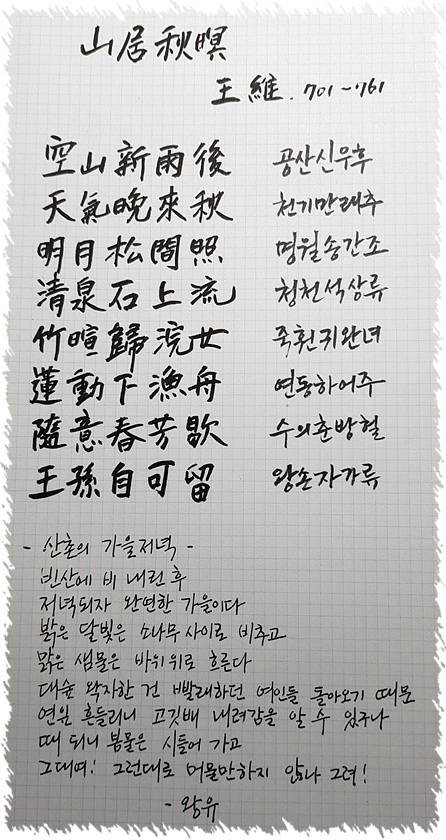 山居秋暝
王維. 701~761
空山新雨後 공산신우후
天氣晩來秋 천기만래추
明月松間照 명월송간조
清泉石上流 청천석상류
竹暄歸浣女 죽훤귀완녀
蓮動下漁舟 연동하어주
隨意春芳歇 수의춘방헐
王孫自可留 왕손자가류
- 산촌의 가을저녁 -
빈산에 비 내린 후
저녁되자 완연한 가을이다
밝은 달빛은 소나무 사이로 비추고
맑은 샘물은 바위 위로 흐른다
대숲 왁자한 건 빨래하던 여인들 돌아오기 때문
연잎 흔들리니 고깃배 내려감을 알 수 있구나
때 되니 봄꽃은 시들어 가고
그대여! 그런대로 머물만하지 않나 그려!
- 왕유